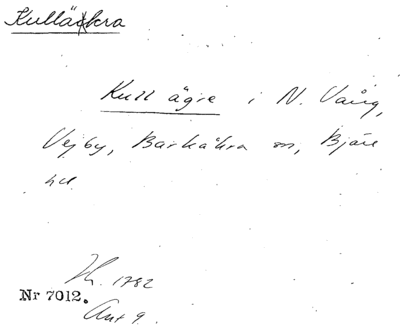 Kulläkra
Kull ägre i N. Vång,
Vejby, Barkåkra sn, Bjäre
hd
Jh. 1782
Nr 7012.
Ant 9.